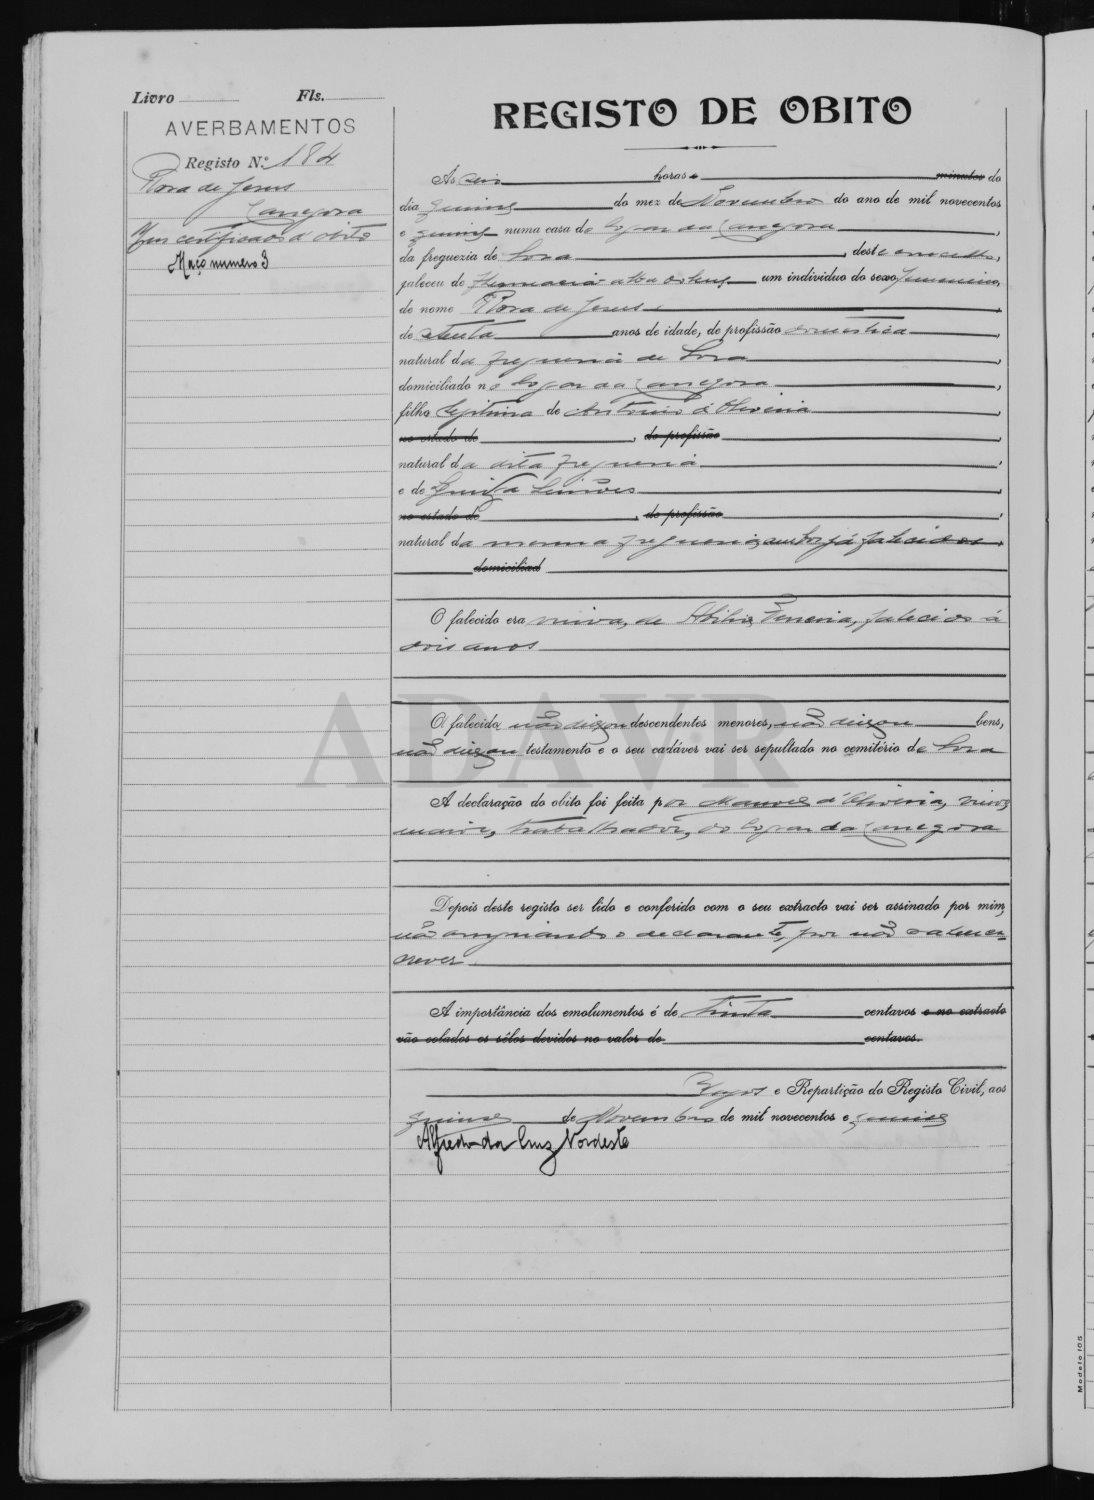 Livro Fls.
AVERBAMENTOS
Registo N.º 184
Rosa de Jesus
Um certificado d'obito
Maço numero 3
REGISTO DE OBITO
As seis horas e minutos do
dia quinze do mez de Novembro do ano de mil novecentos
e quinze numa casa do logar da
da freguezia de, deste concelho,
faleceu de um individuo do sexo femenino,
de nome Rosa de Jesus
de setenta anos de idade, de profissão domestica,
natural da freguesia de
domiciliado no logar da
filha legitima de Antonio d'Oliveira,
no estado de, de profissão,
natural da dita freguesia,
e de Simões,
no estado de, de profissão,
natural da mesma freguesia, ambos já falecidos.
domiciliad
O falecido era viuva, de Abilio Ferreira, falecido á
dois anos
O falecida não deixou descendentes menores, não deixou bens,
não deixou testamento e o seu cadáver vai ser sepultado no cemitério de
A declaração do obito foi feita por Manoel d'Oliveira, viuvo,
maior, trabalhador, do logar da
Depois deste registo ser lido e conferido com o seu extracto vai ser assinado por mim,
não assignando o declarante, por não saber es-
crever
A importância dos emolumentos é de trinta centavos e no extracto
vão colados os sêlos devidos no valor de centavos.
e Repartição do Registo Civil, aos
quinze de Novembro de mil novecentos e quinze
Alfredo da Cruz Nordeste
ADAVR
Modelo 105